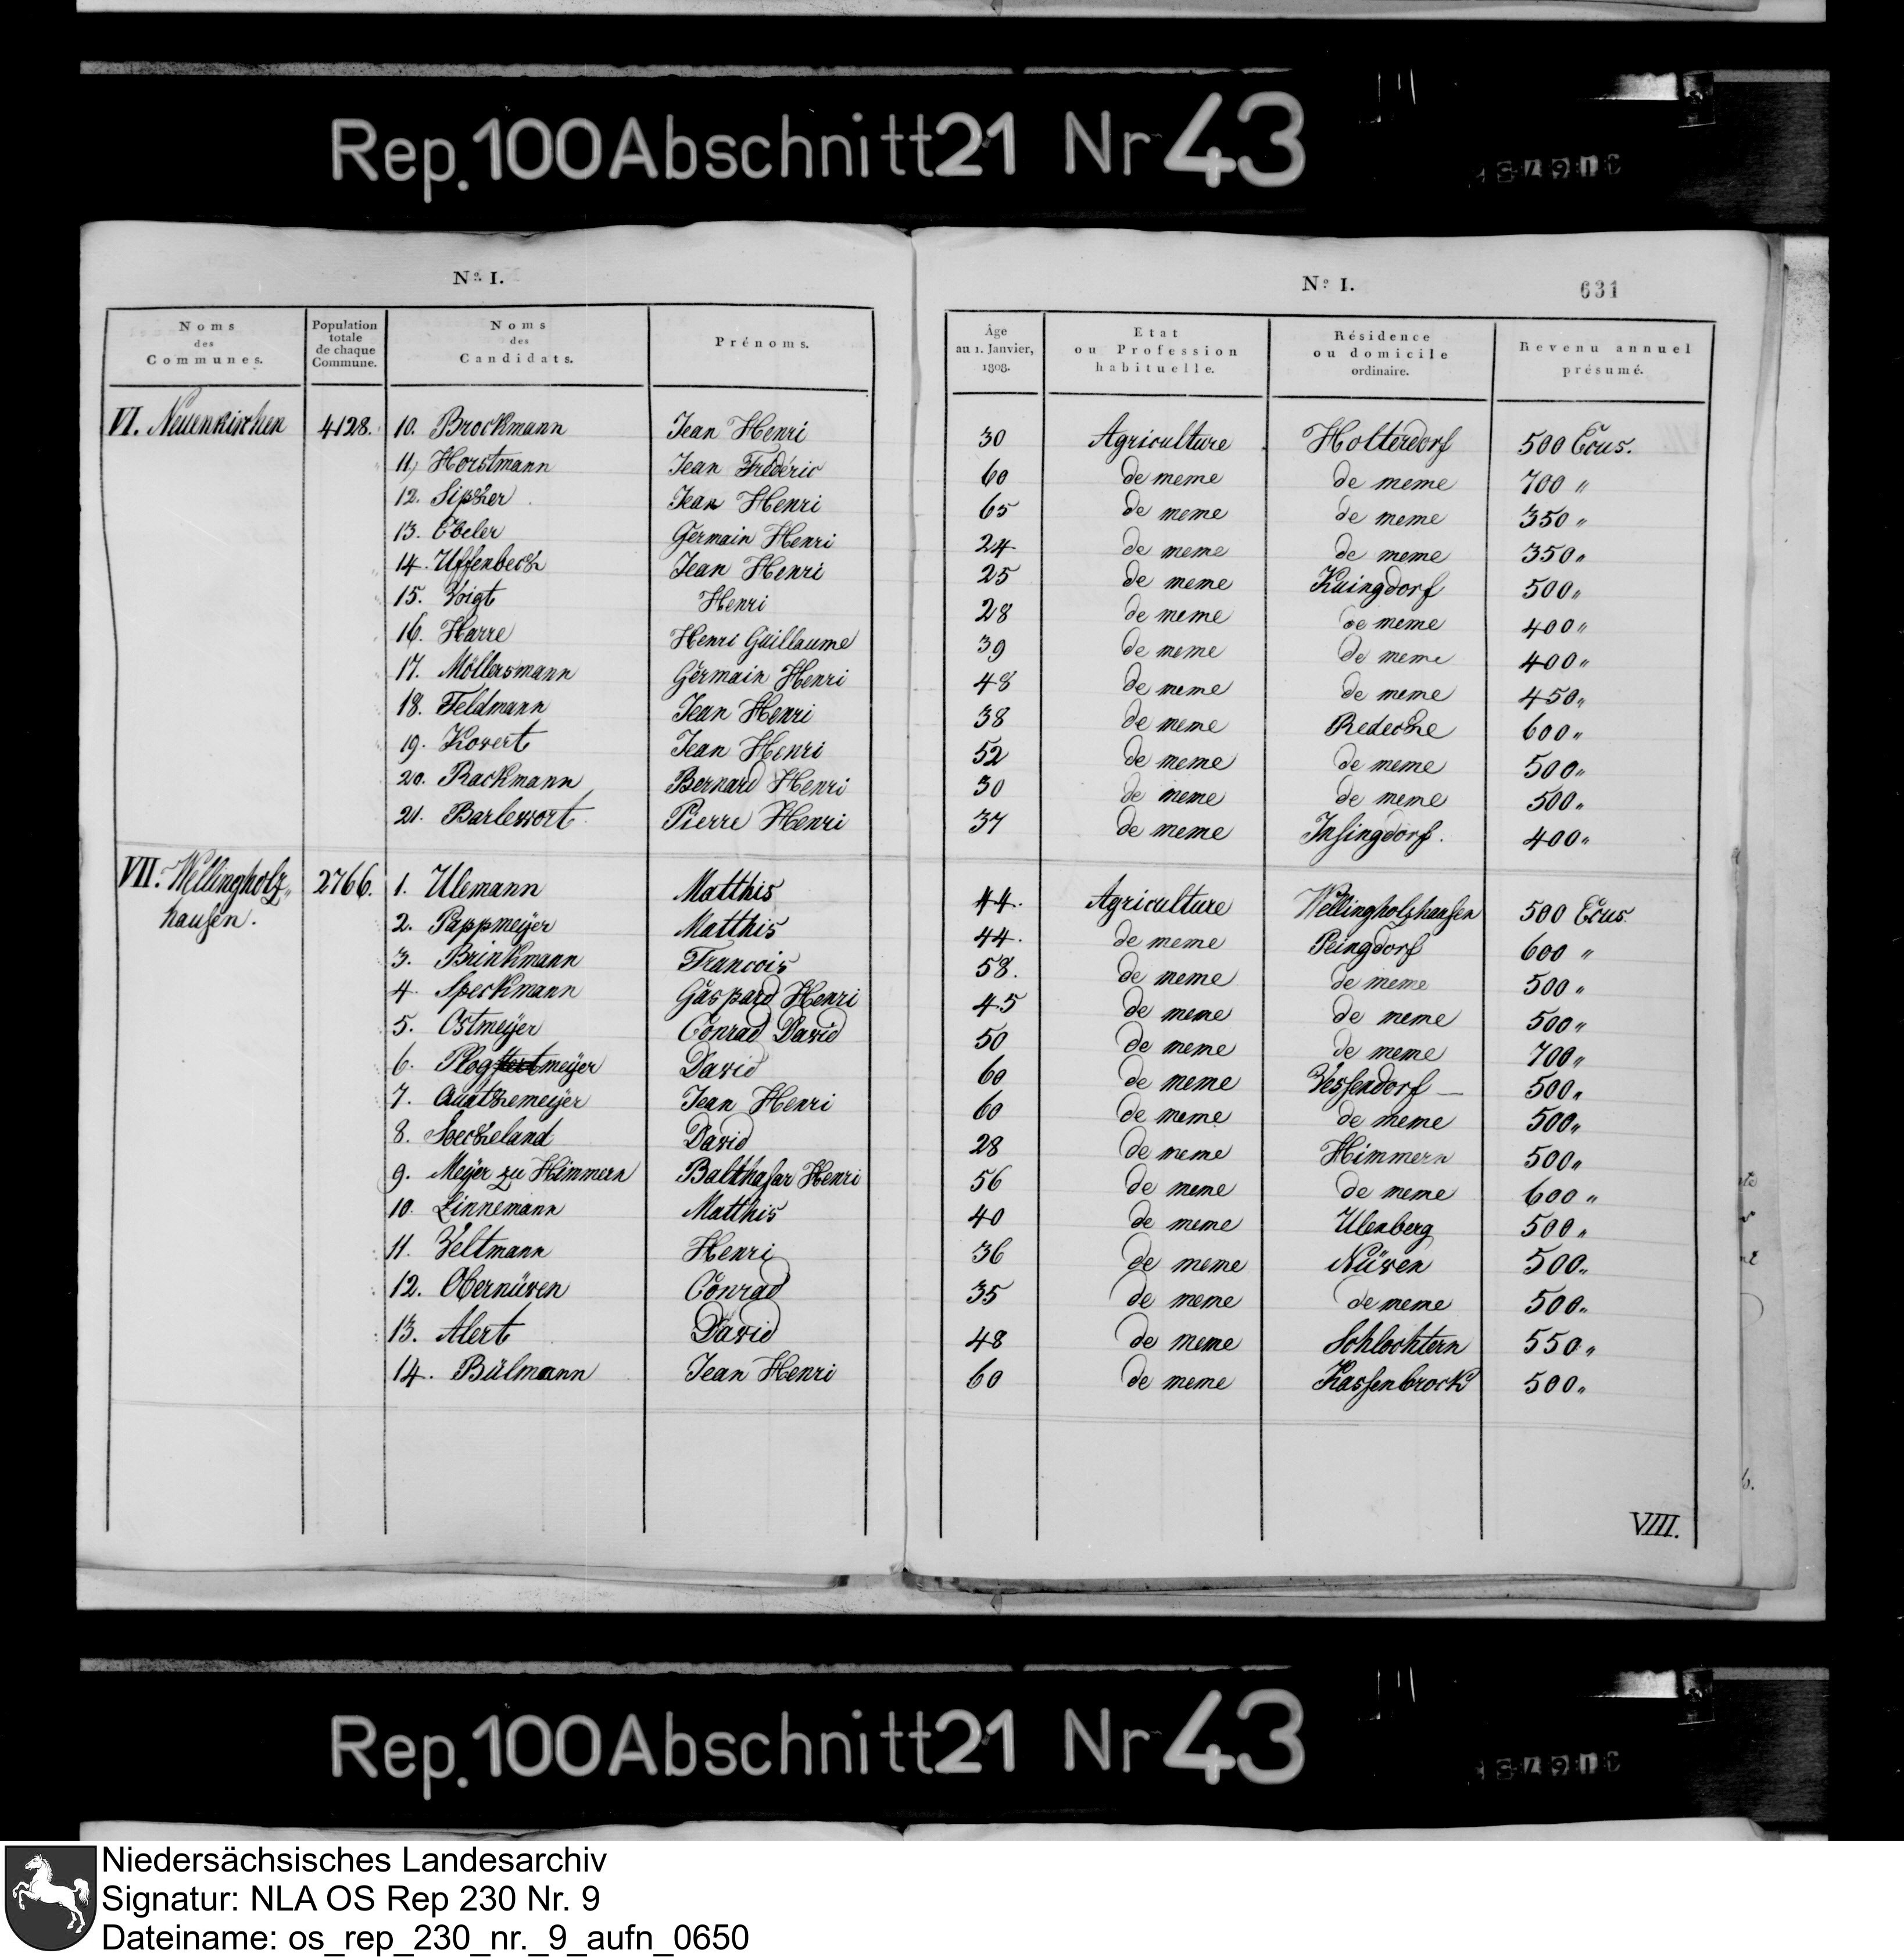 Rep. 100 Abschnitt 21 Nr 43
Nº I.
Nº I. 631
Noms des Communes. Population totale de chaque Commune. Noms des Candidats. Prénoms. Âge au 1. Janvier, 1808. Etat ou Profession habituelle. Résidence ou domicile ordinaire. Revenu annuel présumé.
VI. Neuenkirchen 4128. 10. Brockmann Jean Henri 30 Agriculture Holterdorf 500 Ecus.
11. Horstmann Jean Frédéric 60 de meme de meme 700 "
12. Jean Henri 65 de meme de meme 350 "
13. Ebeler Germain Henri 24 de meme de meme 350 "
14. Uffenbeck Jean Henri 25 de meme Kuingdorf 500 "
15. Voigt Henri 28 de meme de meme 400 "
16. Harre Henri Guillaume 39 de meme de meme 400 "
17. Möllersmann Germain Henri 48 de meme de meme 450 "
18. Feldmann Jean Henri 38 de meme Redecke 600 "
19. Kovert Jean Henri 52 de meme de meme 500 "
20. Rackmann Bernard Henri 30 de meme de meme 500 "
21. Pierre Henri 37 de meme Insingdorf. 400 "
VII. Wellingholz„ 2766. 1. Ulemann Matthis 44. Agriculture Wellingholzhausen 500 Ecus.
hausen. 2. Pappmeyer Matthis 44. de meme Peingdorf 600 "
3. Brinkmann Francois 58. de meme de meme 500 "
4. Speckmann Gaspard Henri 45 de meme de meme 500 "
5. Ostmeyer Conrad David 50 de meme de meme 700 "
6. Plogmeyer David 60 de meme Vessendorf — 500 "
7. Quathemeyer Jean Henri 60 de meme de meme 500 "
8. David 28 de meme Himmern 500 "
9. Meyer zu Himmern Balthasar Henri 56 de meme de meme 600 "
10. Linnemann Matthis 40 de meme Ulenberg 500 "
11. Veltmann Henri 36 de meme Nüven 500 "
12. Obernüven Conrad 35 de meme de meme 500 "
13. Alert David 48 de meme Schlochtern 550 "
14. Bülmann Jean Henri 60 de meme Kassenbrock 500 "
VIII.
Rep. 100 Abschnitt 21 Nr 43
Niedersächsisches Landesarchiv
Signatur: NLA OS Rep 230 Nr. 9
Dateiname: os_rep_230_nr._9_aufn_0650